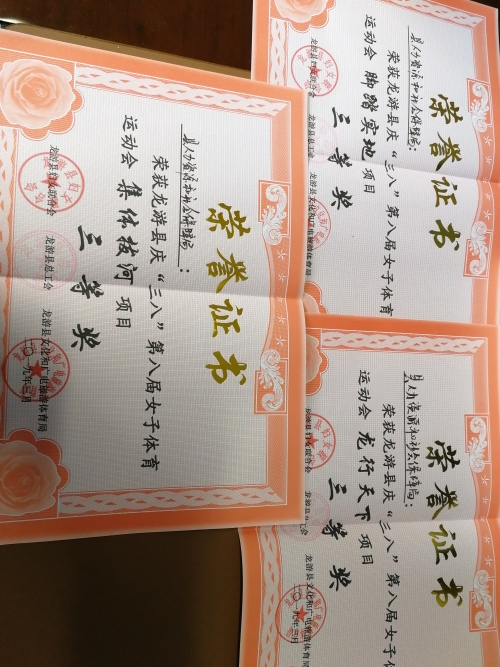 荣誉证书
县人力资源和社会保障局:
荣获龙游县庆“三八”第八届女子体育
运动会 集体拔河 项目
三等奖
龙游县妇女联合会 龙游县总工会 龙游县文化和广电旅游体育局
二〇一九年三月
荣誉证书
县人力资源和社会保障局:
荣获龙游县庆“三八”第八届女子体育
运动会 脚踏实地 项目
三等奖
龙游县妇女联合会 龙游县总工会 龙游县文化和广电旅游体育局
荣誉证书
县人力资源和社会保障局:
荣获龙游县庆“三八”第八届女子体育
运动会 龙行天下 项目
三等奖
龙游县妇女联合会 龙游县总工会 龙游县文化和广电旅游体育局
二〇一九年三月